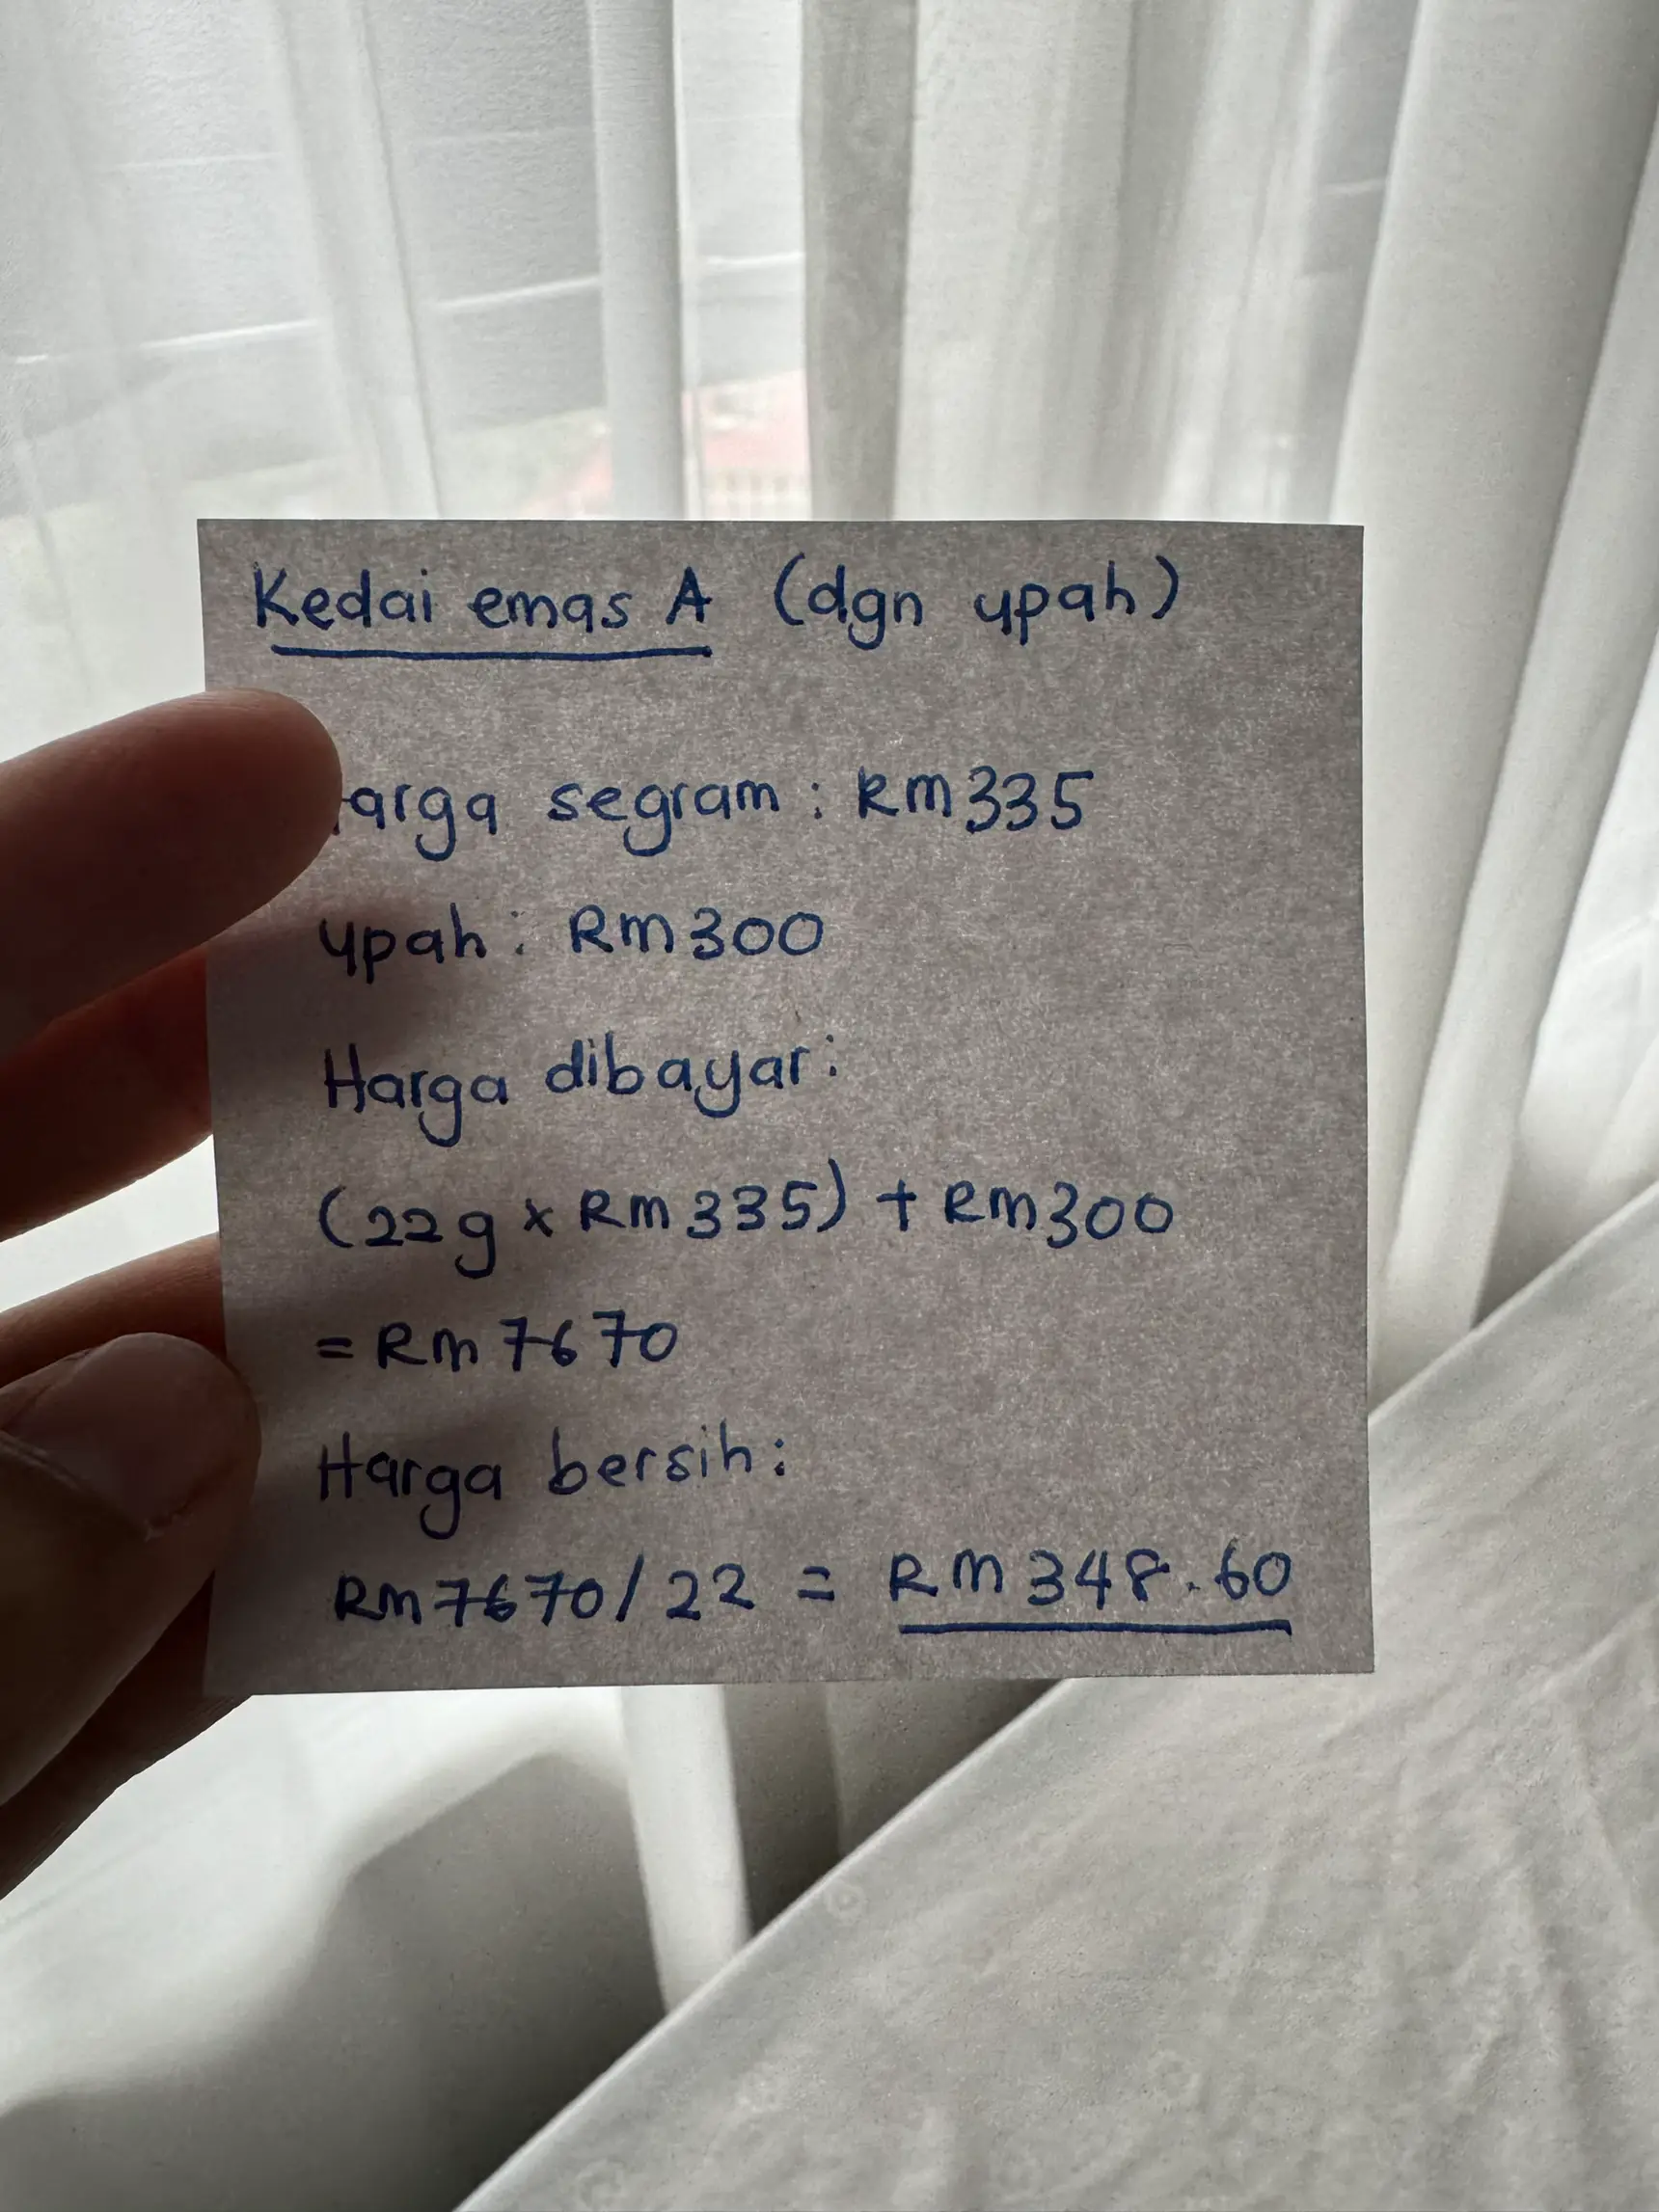 Kedai emas A (dgn upah)
arga segram : RM335
upah : RM300
Harga dibayar :
(22g x RM335) + RM300
= RM7670
Harga bersih :
RM7670/22 = RM348.60